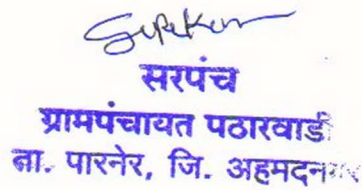 सरपंच
ग्रामपंचायत पठारवाडी
ता. पारनेर, जि. अहमदनगर